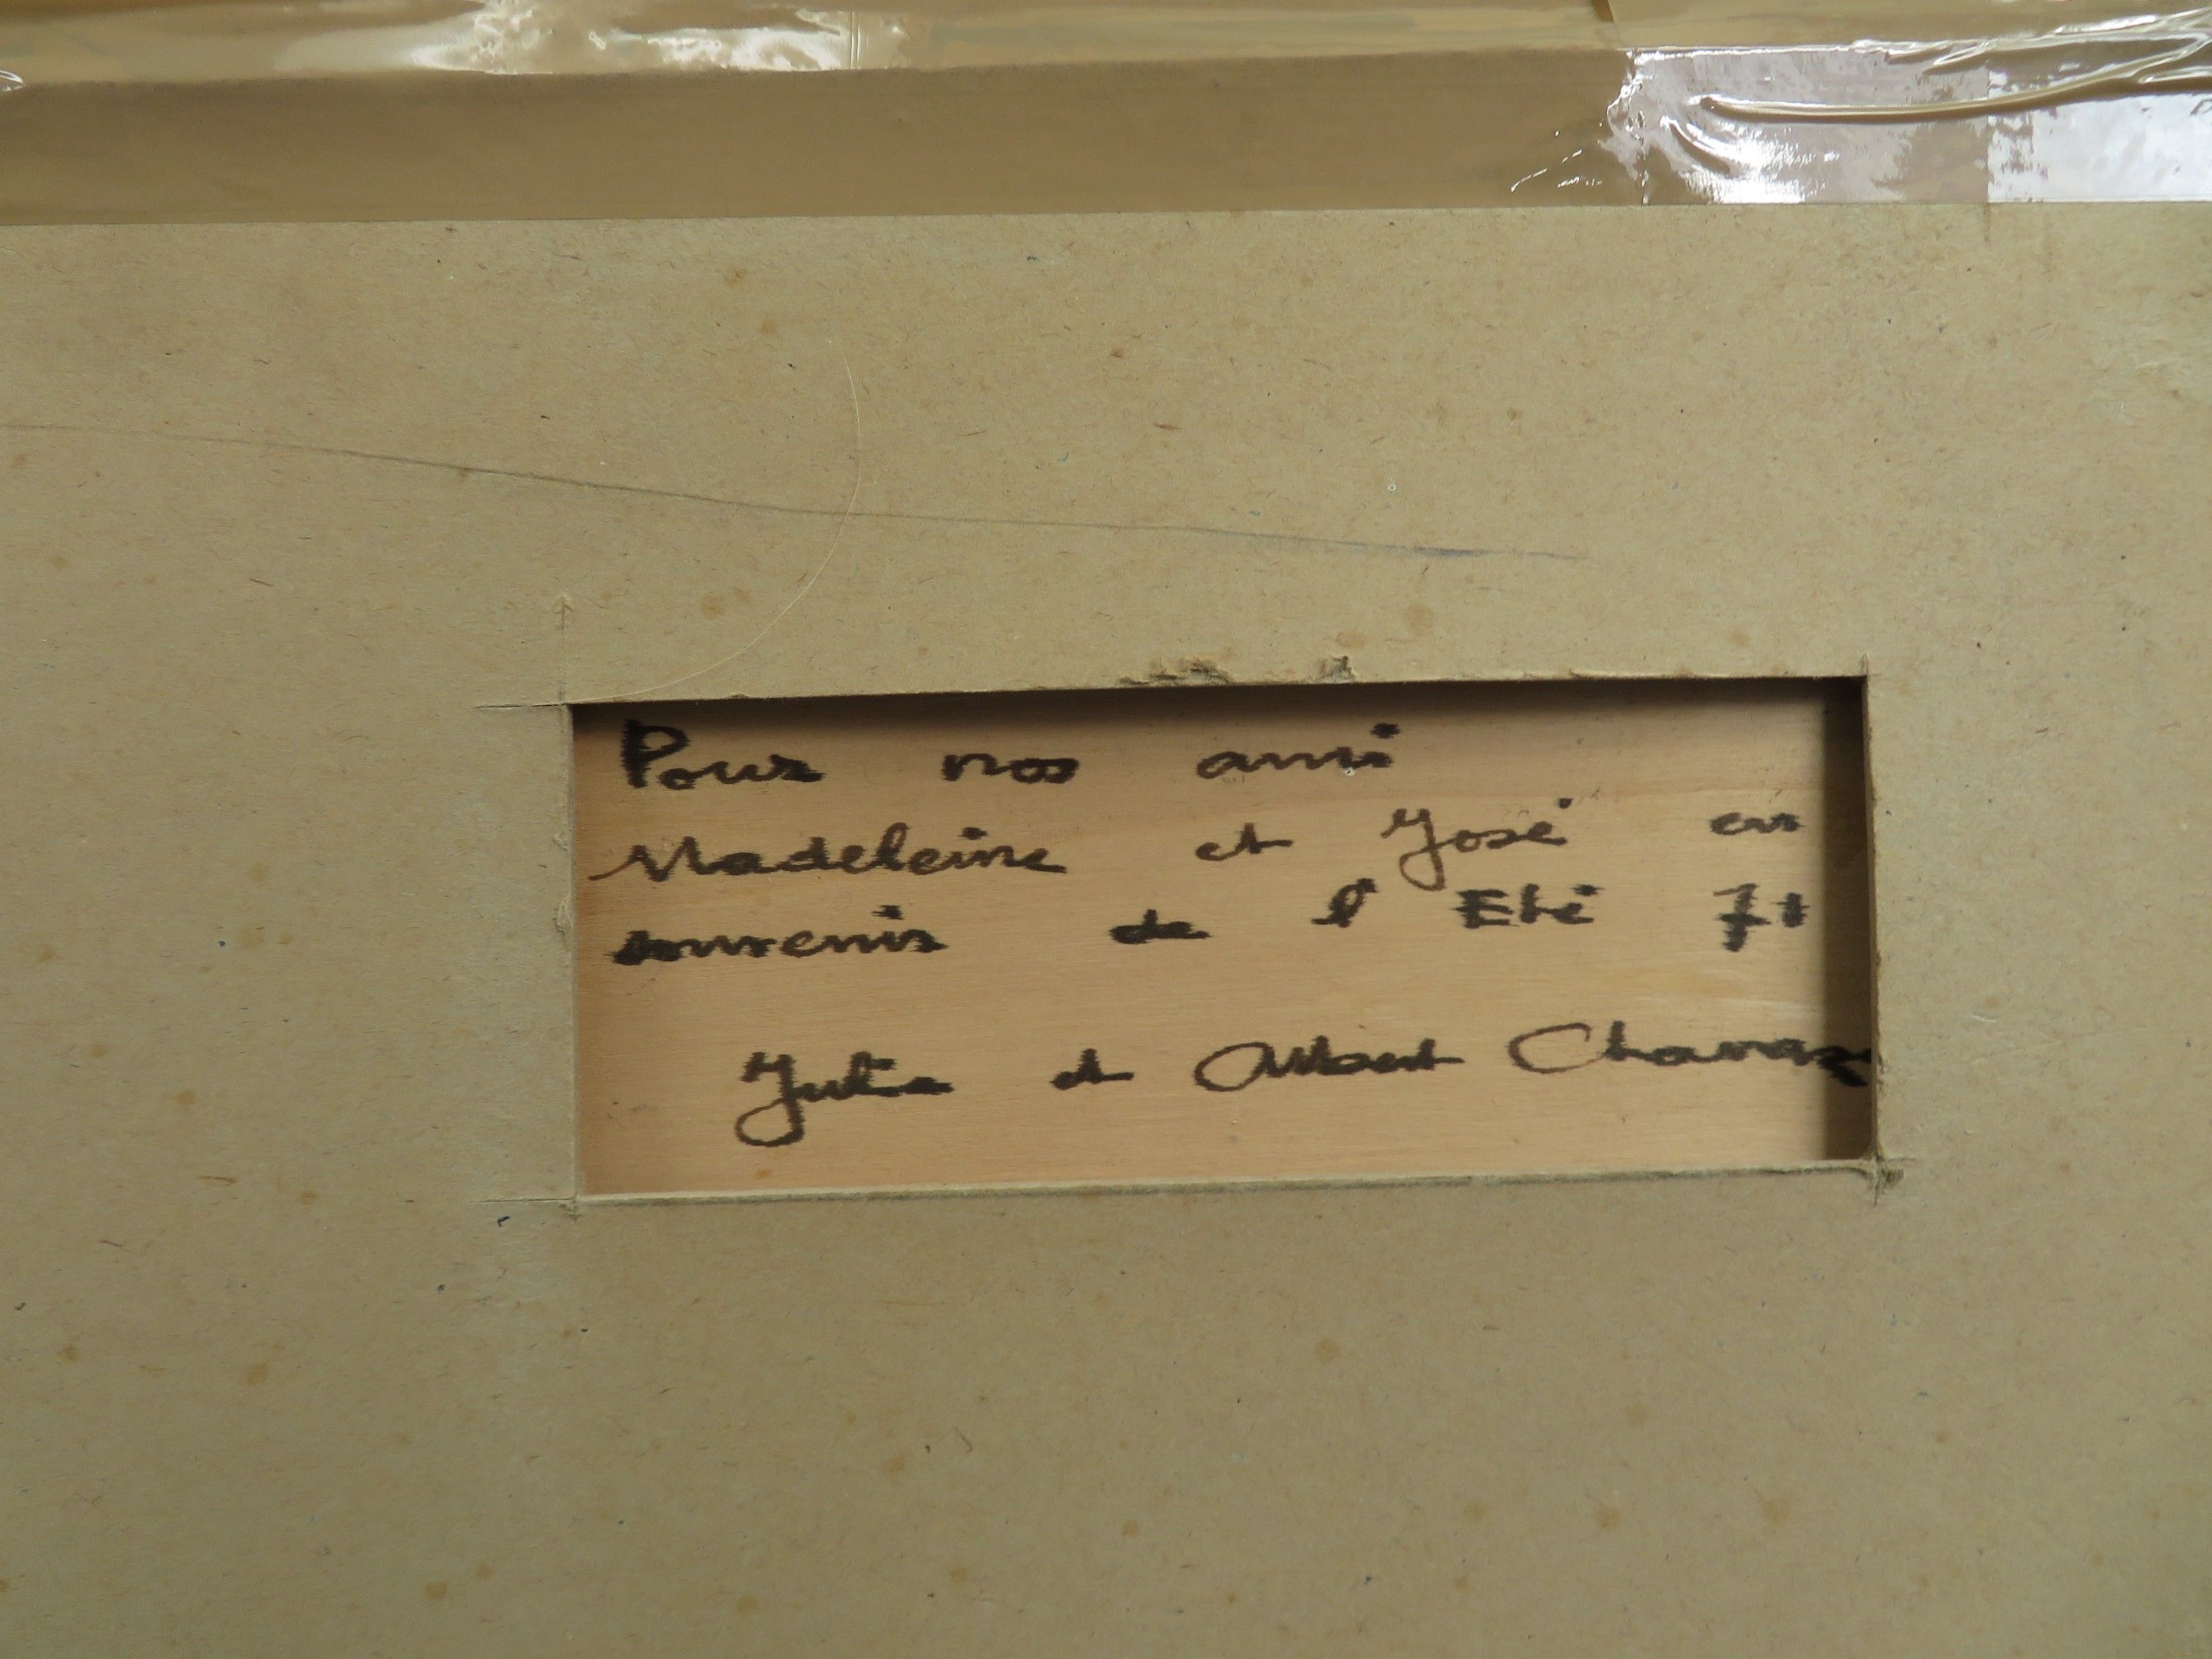 Pour nos ami
Madeleine et José en
souvenir de l'Eté 71
Julie et Albert Chavaz